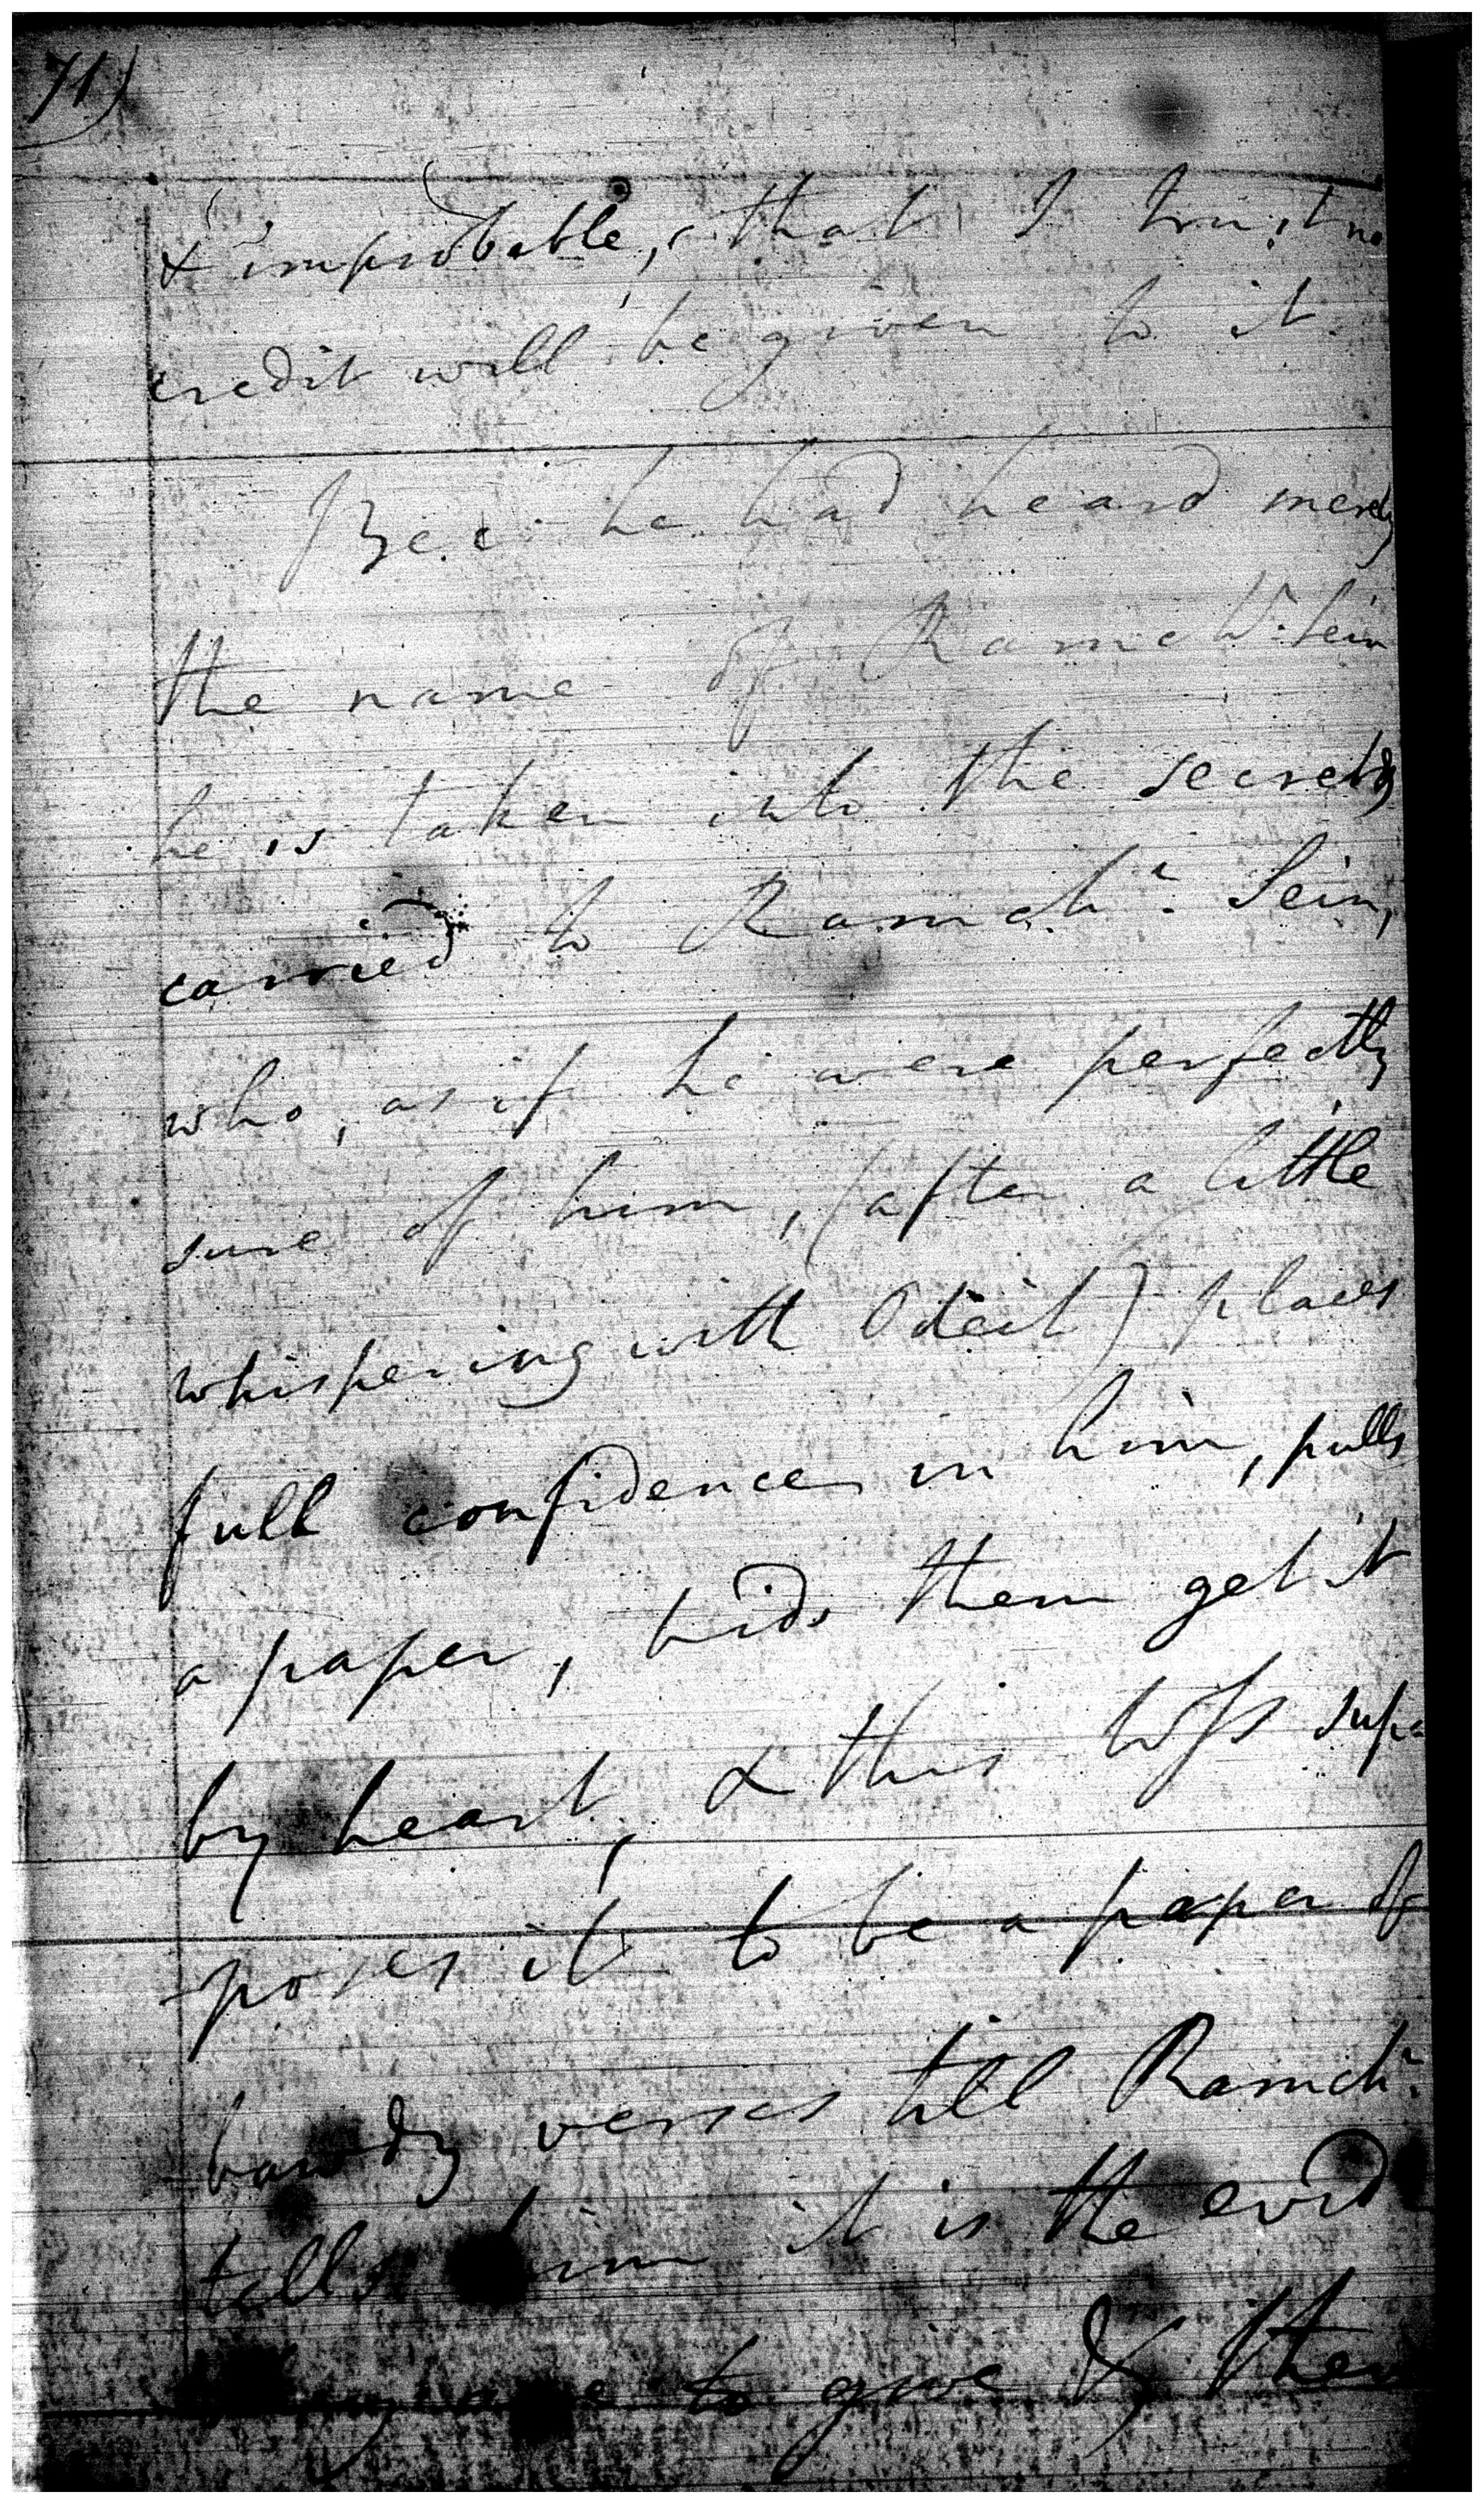 71)
& improbable, that I trust no
credit will be given to it.
Bec: he had heard merely
the name of Ramchr: Sein
he is taken into the secret, &
carried to Ramchr: Sein,
who, as if he were perfectly
sure of him, (after a little
whispering with Odeit) places
full confidence in him, pulls
a paper, bids them get it
by heart, & this Wss sup=
poses it to be a paper of
bawdy verses till Ramchr:
tells him it is the evid
they are to give & then